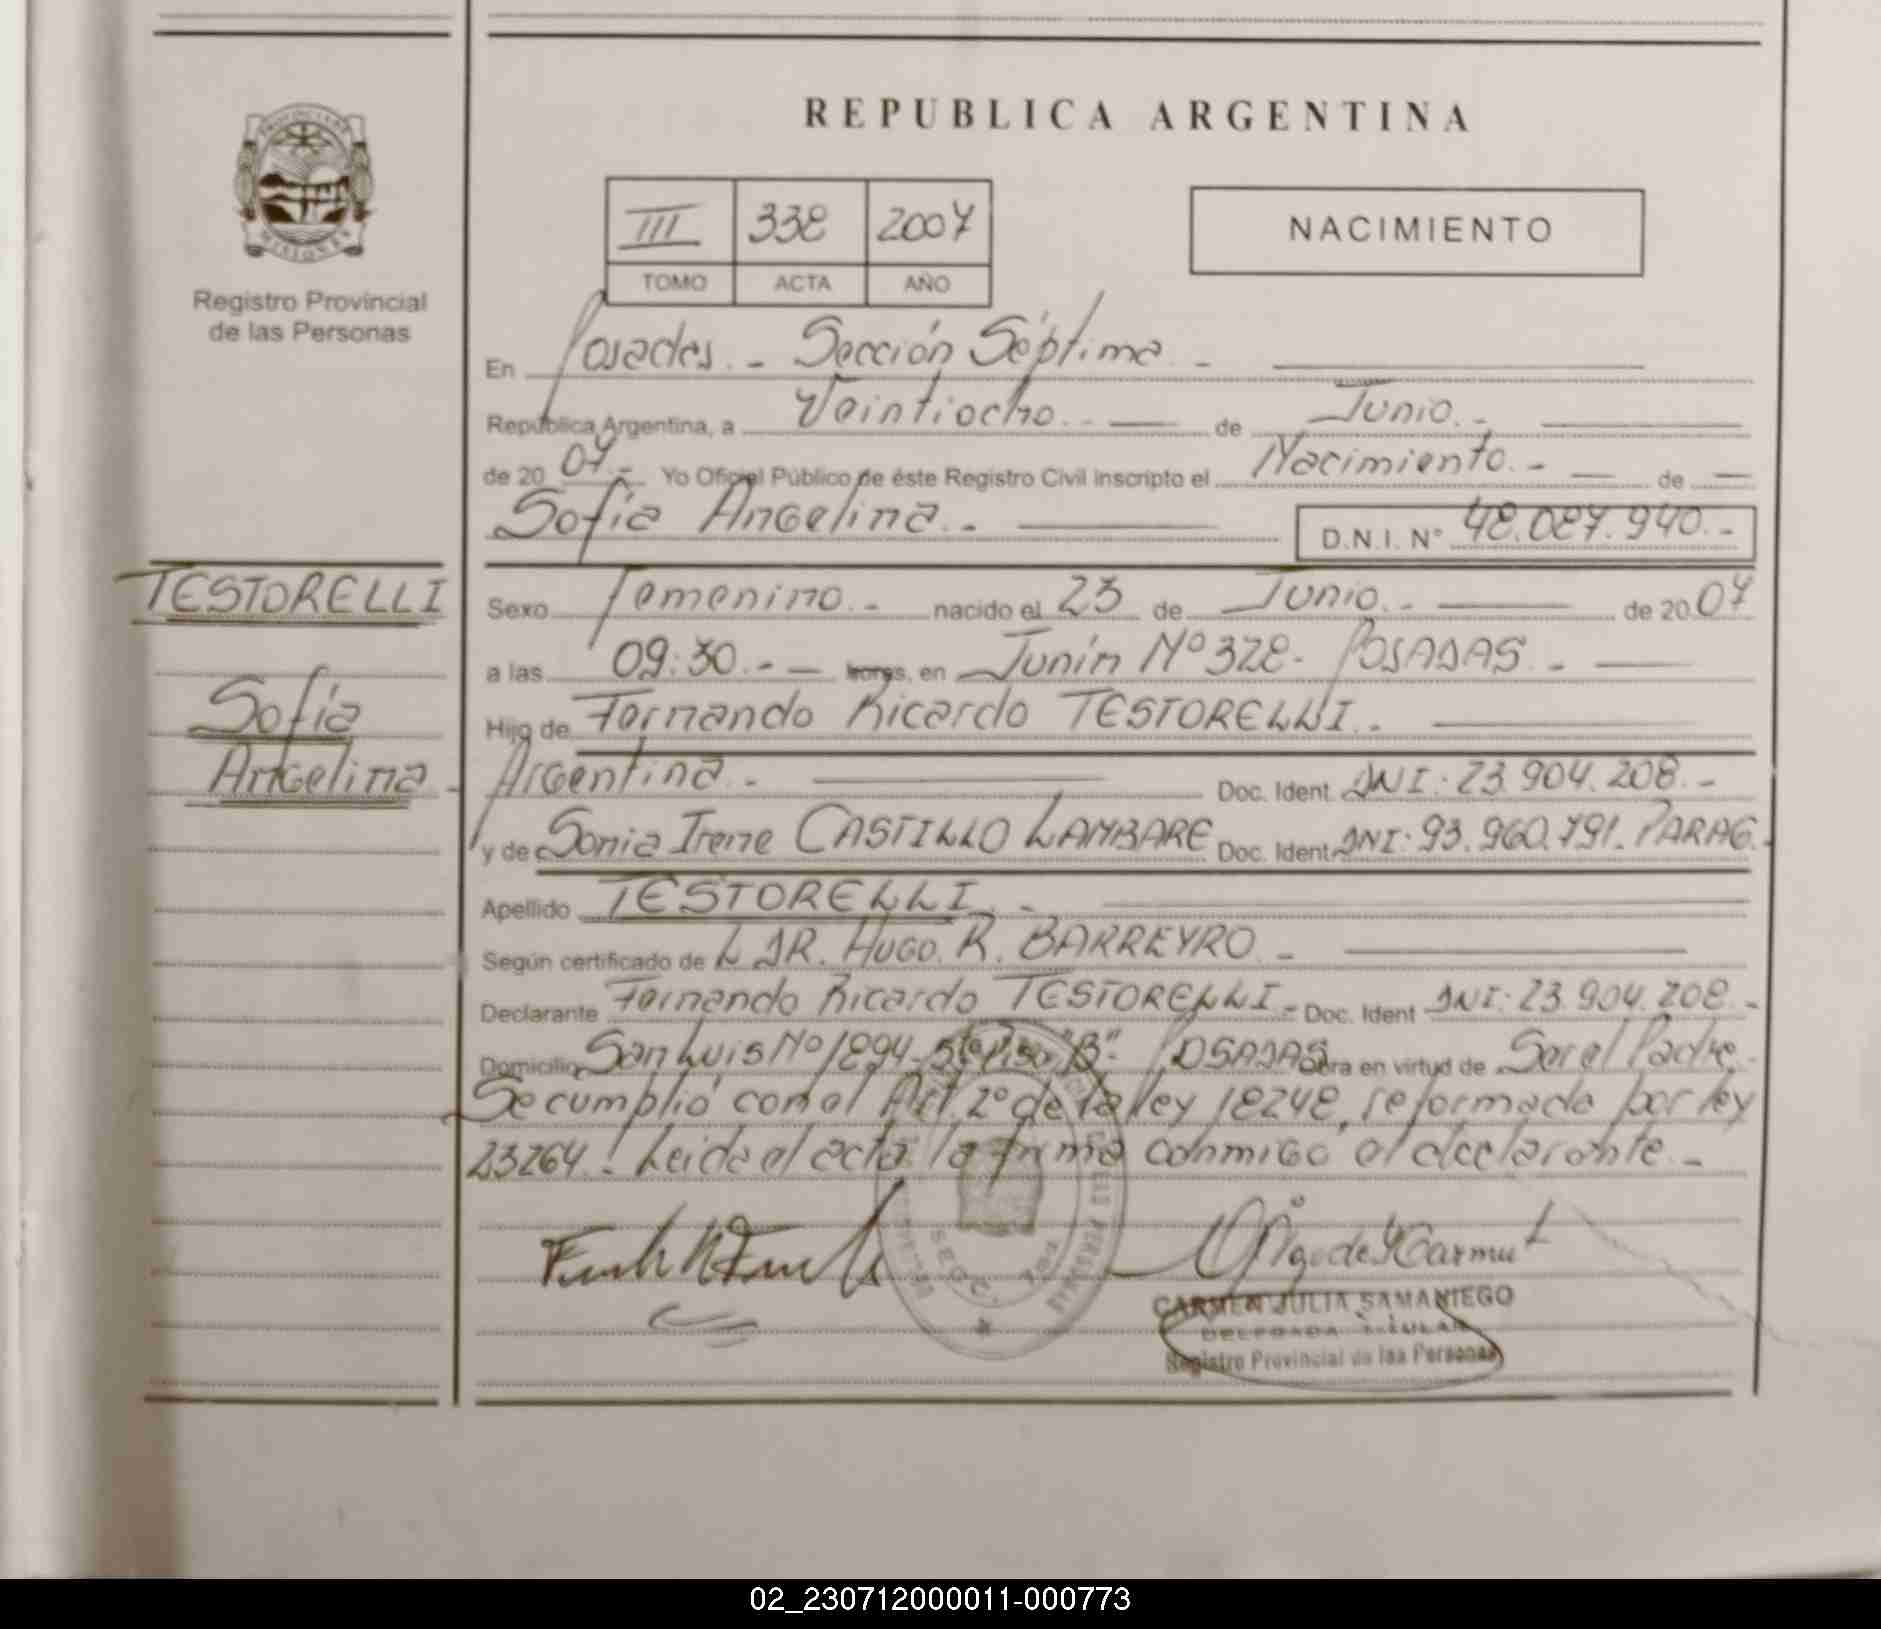 REPUBLICA ARGENTINA
III 338 2007
TOMO ACTA AÑO
NACIMIENTO
MISIONES
Registro Provincial
de las Personas
En Posadas.- Sección Séptima.-
República Argentina, a Veintiocho.- de Junio.-
de 20 07.- Yo Oficial Público de éste Registro Civil inscripto el Nacimiento.- de
Sofía Angelina.- D.N.I. N° 48.087.940.-
TESTORELLI
Sofía
Angelina-
Sexo Femenino.- nacido el 23 de Junio.- de 20 07
a las 09:30.- horas, en Junín Nº 328- POSADAS.-
Hijo de Fernando Ricardo TESTORELLI.-
Argentina.- Doc. Ident DNI: 23.904.208.-
y de Sonia Irene CASTILLO LAMBARE Doc. Ident DNI: 93.960.791. PARAG.
Apellido TESTORELLI.-
Según certificado de L DR. HUGO. R. BARREYRO.-
Declarante Fernando Ricardo TESTORELLI.- Doc. Ident DNI: 23.904.208.-
Domicilio San Luis Nº 1894- 5to Piso "B"- POSADAS Obra en virtud de Ser el Padre.
Se cumplió con el Art. 2º de la ley 18248, reformada por ley
23264.! Leida el acta la firma conmigo el declarante.-
CARMEN JULIA SAMANIEGO
DELEGADA TITULAR
Registro Provincial de las Personas
02_230712000011-000773